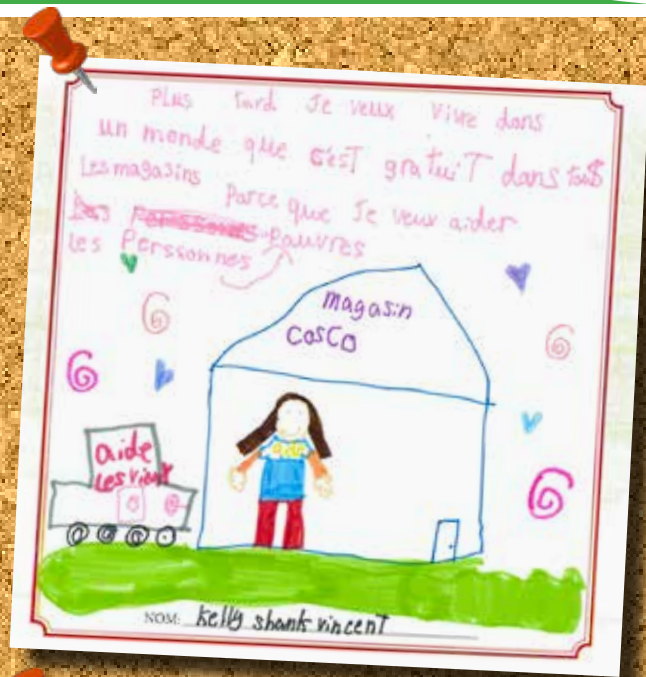 Plus tard Je veux vivre dans
un monde que c'est gratuiT dans tous
Les magasins Parce que Je veux aider
Les Personnes Pauvres
les Perssonnes
magasin
COSCO
aide
Les vieux
aide
NOM: Kelly shank vincent